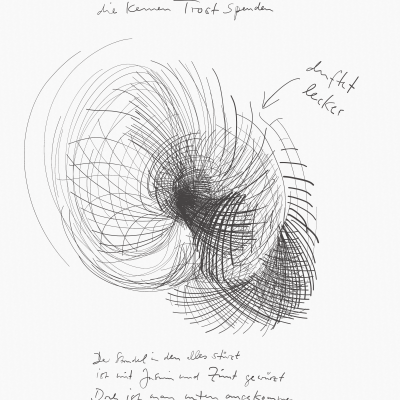 die keinen Trost Spenden
duftet
lecker
Der Strudel in den alles stürzt
ist mit Jasmin und Zimt gewürzt
Doch ist man unten angekommen